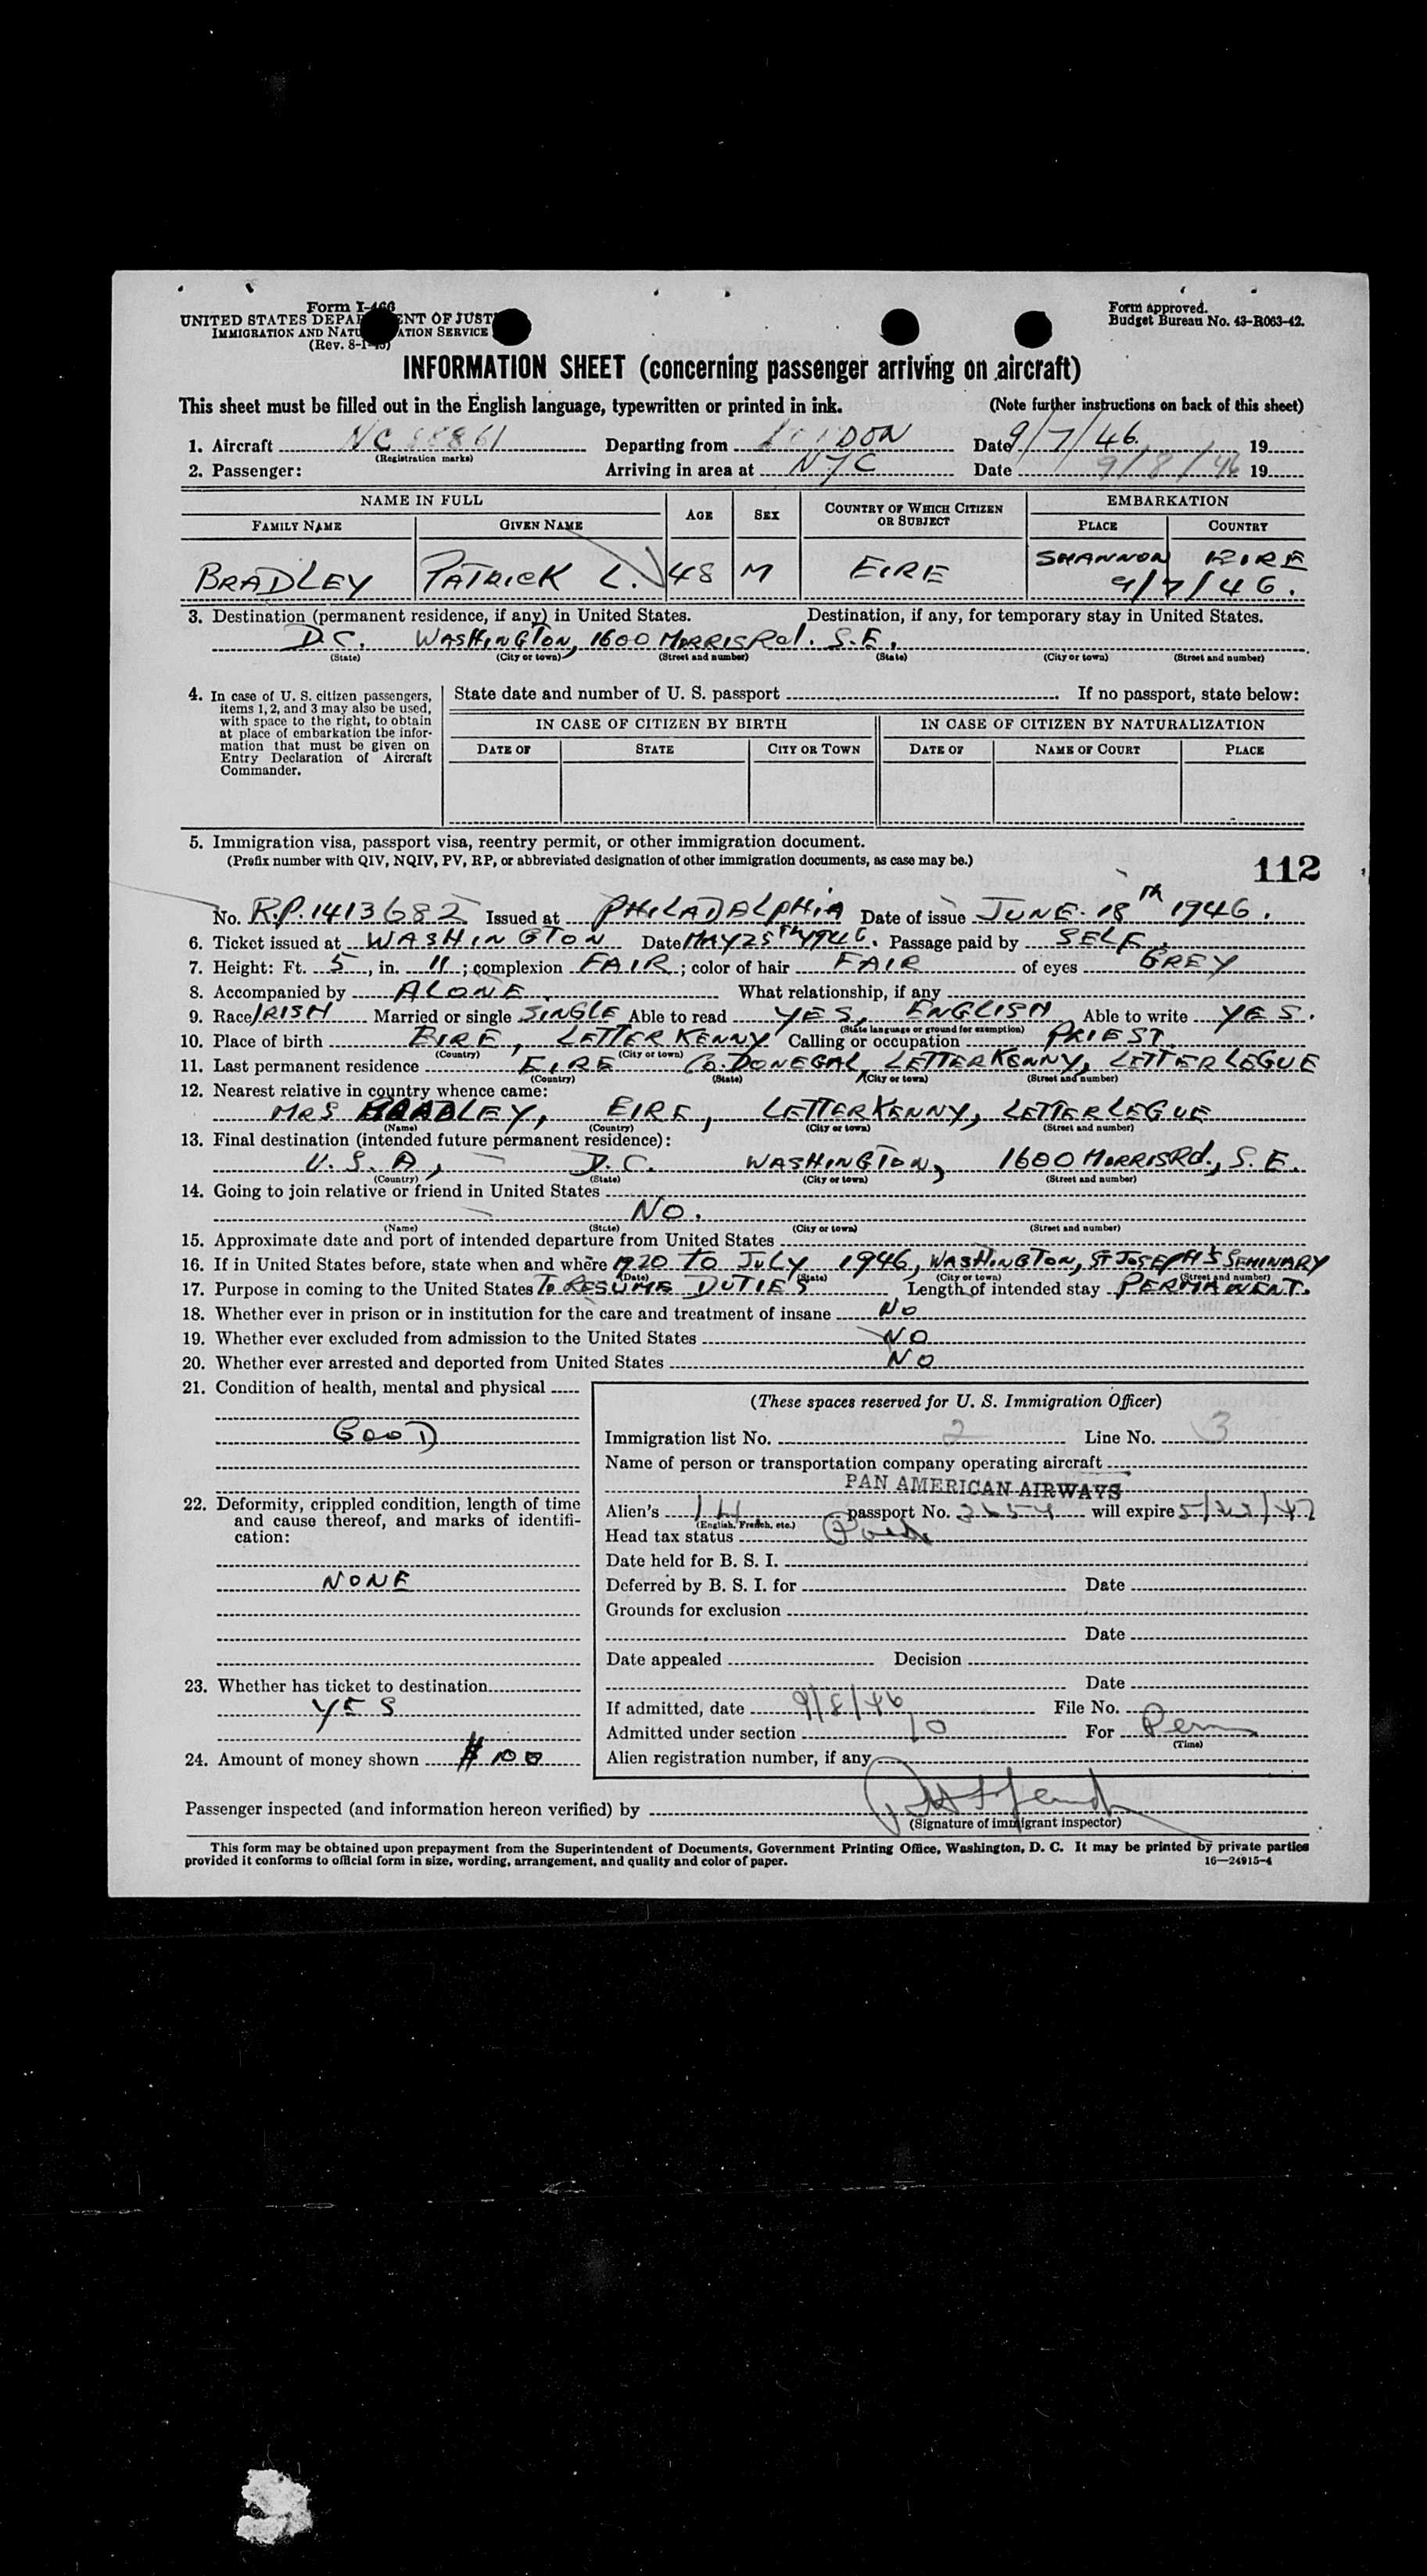 Form I-466
UNITED STATES DEPARTMENT OF JUSTICE
IMMIGRATION AND NATURALIZATION SERVICE
(Rev. 8-1-45)
Form approved.
Budget Bureau No. 43-R063-42.
INFORMATION SHEET (concerning passenger arriving on aircraft)
This sheet must be filled out in the English language, typewritten or printed in ink. (Note further instructions on back of this sheet)
1. Aircraft NC 88861 Departing from LONDON Date 9/7/46 19
(Registration marks)
2. Passenger: Arriving in area at NYC Date 9/8/46 19
NAME IN FULL AGE SEX COUNTRY OF WHICH CITIZEN OR SUBJECT EMBARKATION
FAMILY NAME GIVEN NAME PLACE COUNTRY
BRADLEY PATRICK L. 48 M EIRE SHANNON EIRE
9/7/46.
3. Destination (permanent residence, if any) in United States. Destination, if any, for temporary stay in United States.
D.C. WASHINGTON, 1600 MORRIS Rd. S.E.
(State) (City or town) (Street and number) (State) (City or town) (Street and number)
4. In case of U. S. citizen passengers, items 1, 2, and 3 may also be used, with space to the right, to obtain at place of embarkation the information that must be given on Entry Declaration of Aircraft Commander.
State date and number of U. S. passport If no passport, state below:
IN CASE OF CITIZEN BY BIRTH IN CASE OF CITIZEN BY NATURALIZATION
DATE OF STATE CITY OR TOWN DATE OF NAME OF COURT PLACE
5. Immigration visa, passport visa, reentry permit, or other immigration document.
(Prefix number with QIV, NQIV, PV, RP, or abbreviated designation of other immigration documents, as case may be.)
112
No. R.P. 1413682 Issued at PHILADALPHIA Date of issue JUNE 18th 1946.
6. Ticket issued at WASHINGTON Date MAY 25TH 1946. Passage paid by SELF.
7. Height: Ft. 5, in. 11; complexion FAIR; color of hair FAIR of eyes GREY
8. Accompanied by ALONE. What relationship, if any
9. Race IRISH Married or single SINGLE Able to read YES, ENGLISH Able to write YES.
(State language or ground for exemption)
10. Place of birth EIRE, LETTERKENNY Calling or occupation PRIEST.
(Country) (City or town)
11. Last permanent residence EIRE Co. DONEGAL, LETTERKENNY, LETTERLEGUE
(Country) (State) (City or town) (Street and number)
12. Nearest relative in country whence came:
MRS BRADLEY, EIRE, LETTERKENNY, LETTERLEGUE
(Name) (Country) (City or town) (Street and number)
13. Final destination (intended future permanent residence):
U.S.A, D.C. WASHINGTON, 1600 MORRIS Rd., S.E.
(Country) (State) (City or town) (Street and number)
14. Going to join relative or friend in United States
NO.
(Name) (State) (City or town) (Street and number)
15. Approximate date and port of intended departure from United States
16. If in United States before, state when and where 1920 TO JULY 1946, WASHINGTON, ST JOSEPH'S SEMINARY
(Date) (State) (City or town) (Street and number)
17. Purpose in coming to the United States TO RESUME DUTIES Length of intended stay PERMANENT.
18. Whether ever in prison or in institution for the care and treatment of insane NO
19. Whether ever excluded from admission to the United States NO
20. Whether ever arrested and deported from United States NO
21. Condition of health, mental and physical
GOOD
22. Deformity, crippled condition, length of time and cause thereof, and marks of identification:
NONE
23. Whether has ticket to destination
YES
24. Amount of money shown $100
(These spaces reserved for U. S. Immigration Officer)
Immigration list No. 2 Line No. 3
Name of person or transportation company operating aircraft
PAN AMERICAN AIRWAYS
Alien's passport No. will expire 5/22/47
(English, French, etc.)
Head tax status
Date held for B. S. I.
Deferred by B. S. I. for Date
Grounds for exclusion
Date
Date appealed Decision
Date
If admitted, date 9/8/46 File No.
Admitted under section 10 For Perm
(Time)
Alien registration number, if any
Passenger inspected (and information hereon verified) by
(Signature of immigrant inspector)
This form may be obtained upon prepayment from the Superintendent of Documents, Government Printing Office, Washington, D. C. It may be printed by private parties
provided it conforms to official form in size, wording, arrangement, and quality and color of paper. 16—24915-4